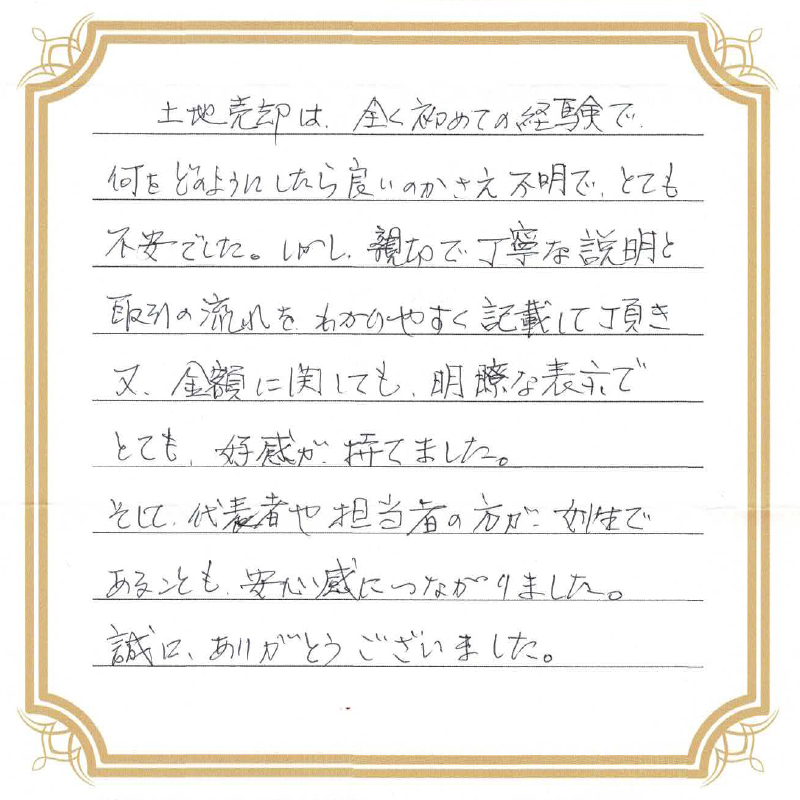 土地売却は、全く初めての経験で、
何をどのようにしたら良いのかさえ不明で、とても
不安でした。しかし、親切で丁寧な説明と
取引の流れを、わかりやすく記載して頂き
又、金額に関しても、明瞭な表示で
とても、好感が、持てました。
そして、代表者や担当者の方が、女性で
あることも、安心感につながりました。
誠に、ありがとうございました。